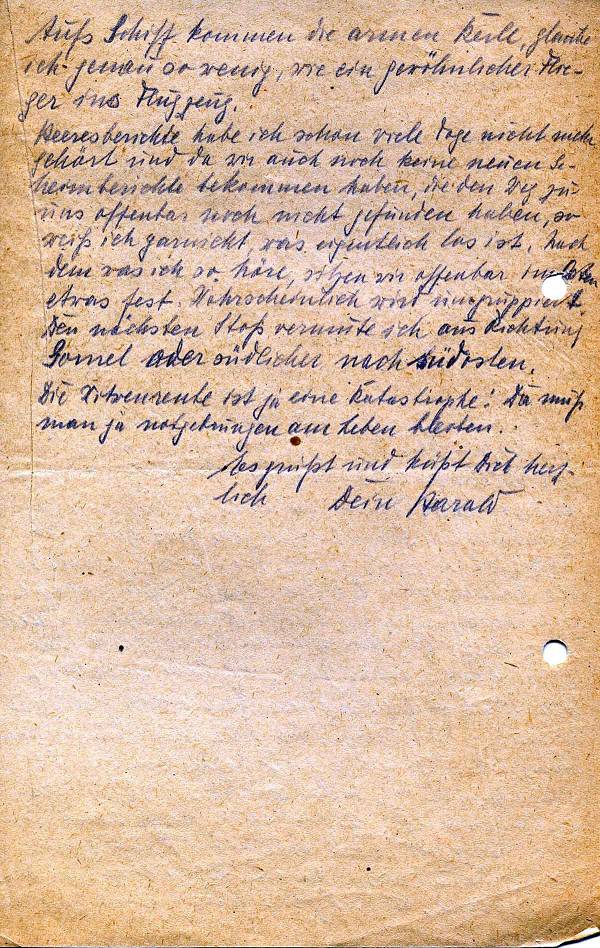 Aufs Schiff kommen die armen Kerle, glaube
ich genau so wenig, wie ein gewöhnlicher Flie-
ger ins Flugzeug.
Heeresberichte habe ich schon viele Tage nicht mehr
gehört und da wir auch noch keine neuen Ge-
heimberichte bekommen haben, die den Weg zu
uns offenbar noch nicht gefunden haben, so
weiß ich garnicht, was eigentlich los ist. Nach
dem was ich so höre, sitzen wir offenbar im Osten
etwas fest. Wahrscheinlich wird umgruppiert.
Den nächsten Stoß vermute ich aus Richtung
Gomel oder südlicher nach Südosten.
Die Witwenrente ist ja eine Katastrophe! Da muß
man ja notgedrungen am Leben bleiben.
Es grüßt und küßt Dich herz-
lich Dein Harald